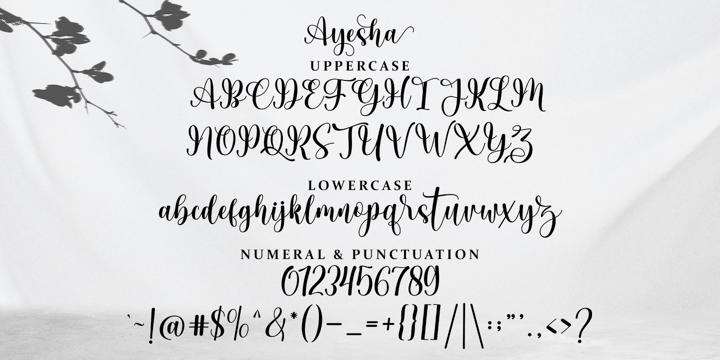 Ayesha
UPPERCASE
ABCDEFGHIJKLM
NOPQRSTUVWXYZ
LOWERCASE
abcdefghijklmnopqrstuvwxyz
NUMERAL & PUNCTUATION
0123456789
`~!@#$%^&*()-_=+{}[]/|\:;"'.,<>?